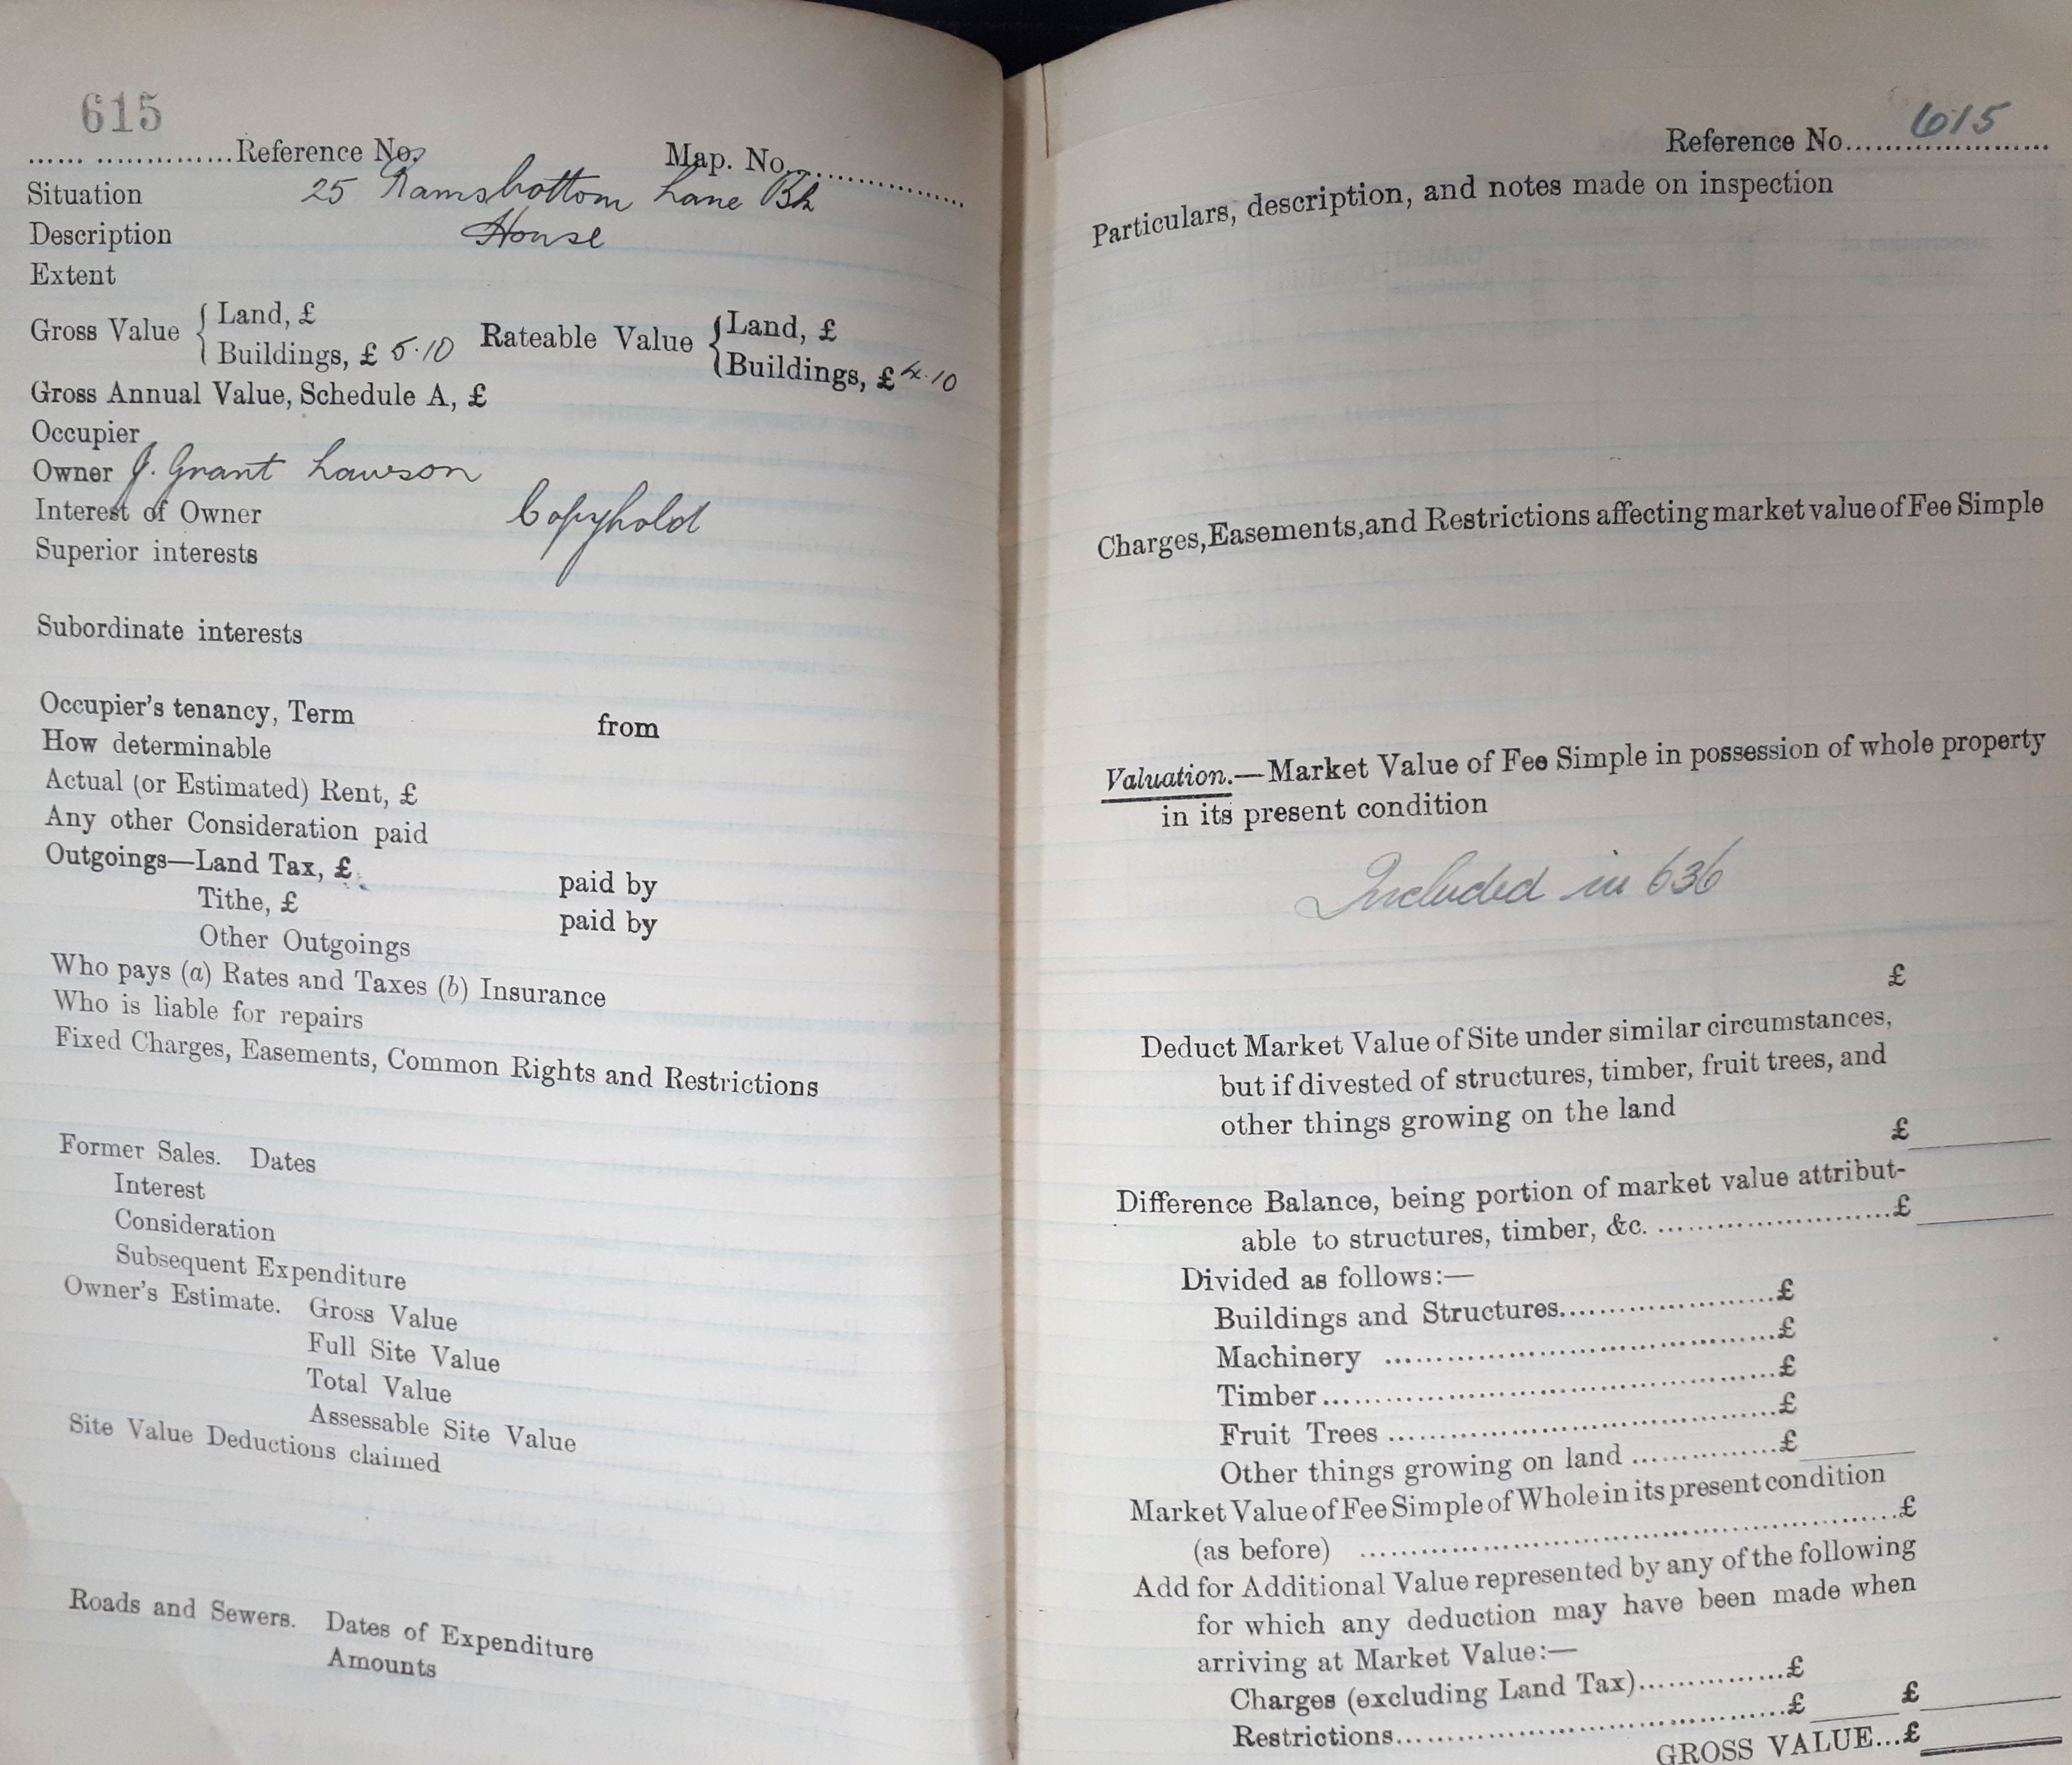 615
...... ...............Reference No. Map. No...................
Situation 25 Ramsbottom Lane
Description House
Extent
Gross Value { Land, £
Buildings, £ 5.10
Rateable Value { Land, £
Buildings, £ 4.10
Gross Annual Value, Schedule A, £
Occupier
Owner J. Grant Lawson
Interest of Owner Copyhold
Superior interests
Subordinate interests
Occupier's tenancy, Term from
How determinable
Actual (or Estimated) Rent, £
Any other Consideration paid
Outgoings—Land Tax, £ paid by
Tithe, £ paid by
Other Outgoings
Who pays (a) Rates and Taxes (b) Insurance
Who is liable for repairs
Fixed Charges, Easements, Common Rights and Restrictions
Former Sales. Dates
Interest
Consideration
Subsequent Expenditure
Owner's Estimate. Gross Value
Full Site Value
Total Value
Assessable Site Value
Site Value Deductions claimed
Roads and Sewers. Dates of Expenditure
Amounts
Reference No. 615
Particulars, description, and notes made on inspection
Charges, Easements, and Restrictions affecting market value of Fee Simple
Valuation.—Market Value of Fee Simple in possession of whole property
in its present condition
Included in 636
£
Deduct Market Value of Site under similar circumstances,
but if divested of structures, timber, fruit trees, and
other things growing on the land
£
Difference Balance, being portion of market value attribut-
able to structures, timber, &c. .........................£
Divided as follows:—
Buildings and Structures.......................£
Machinery ..........................................£
Timber................................................£
Fruit Trees .........................................£
Other things growing on land ...............£
Market Value of Fee Simple of Whole in its present condition
(as before) ..........................................................£
Add for Additional Value represented by any of the following
for which any deduction may have been made when
arriving at Market Value:—
Charges (excluding Land Tax)................£
Restrictions..........................................£ £
GROSS VALUE...£